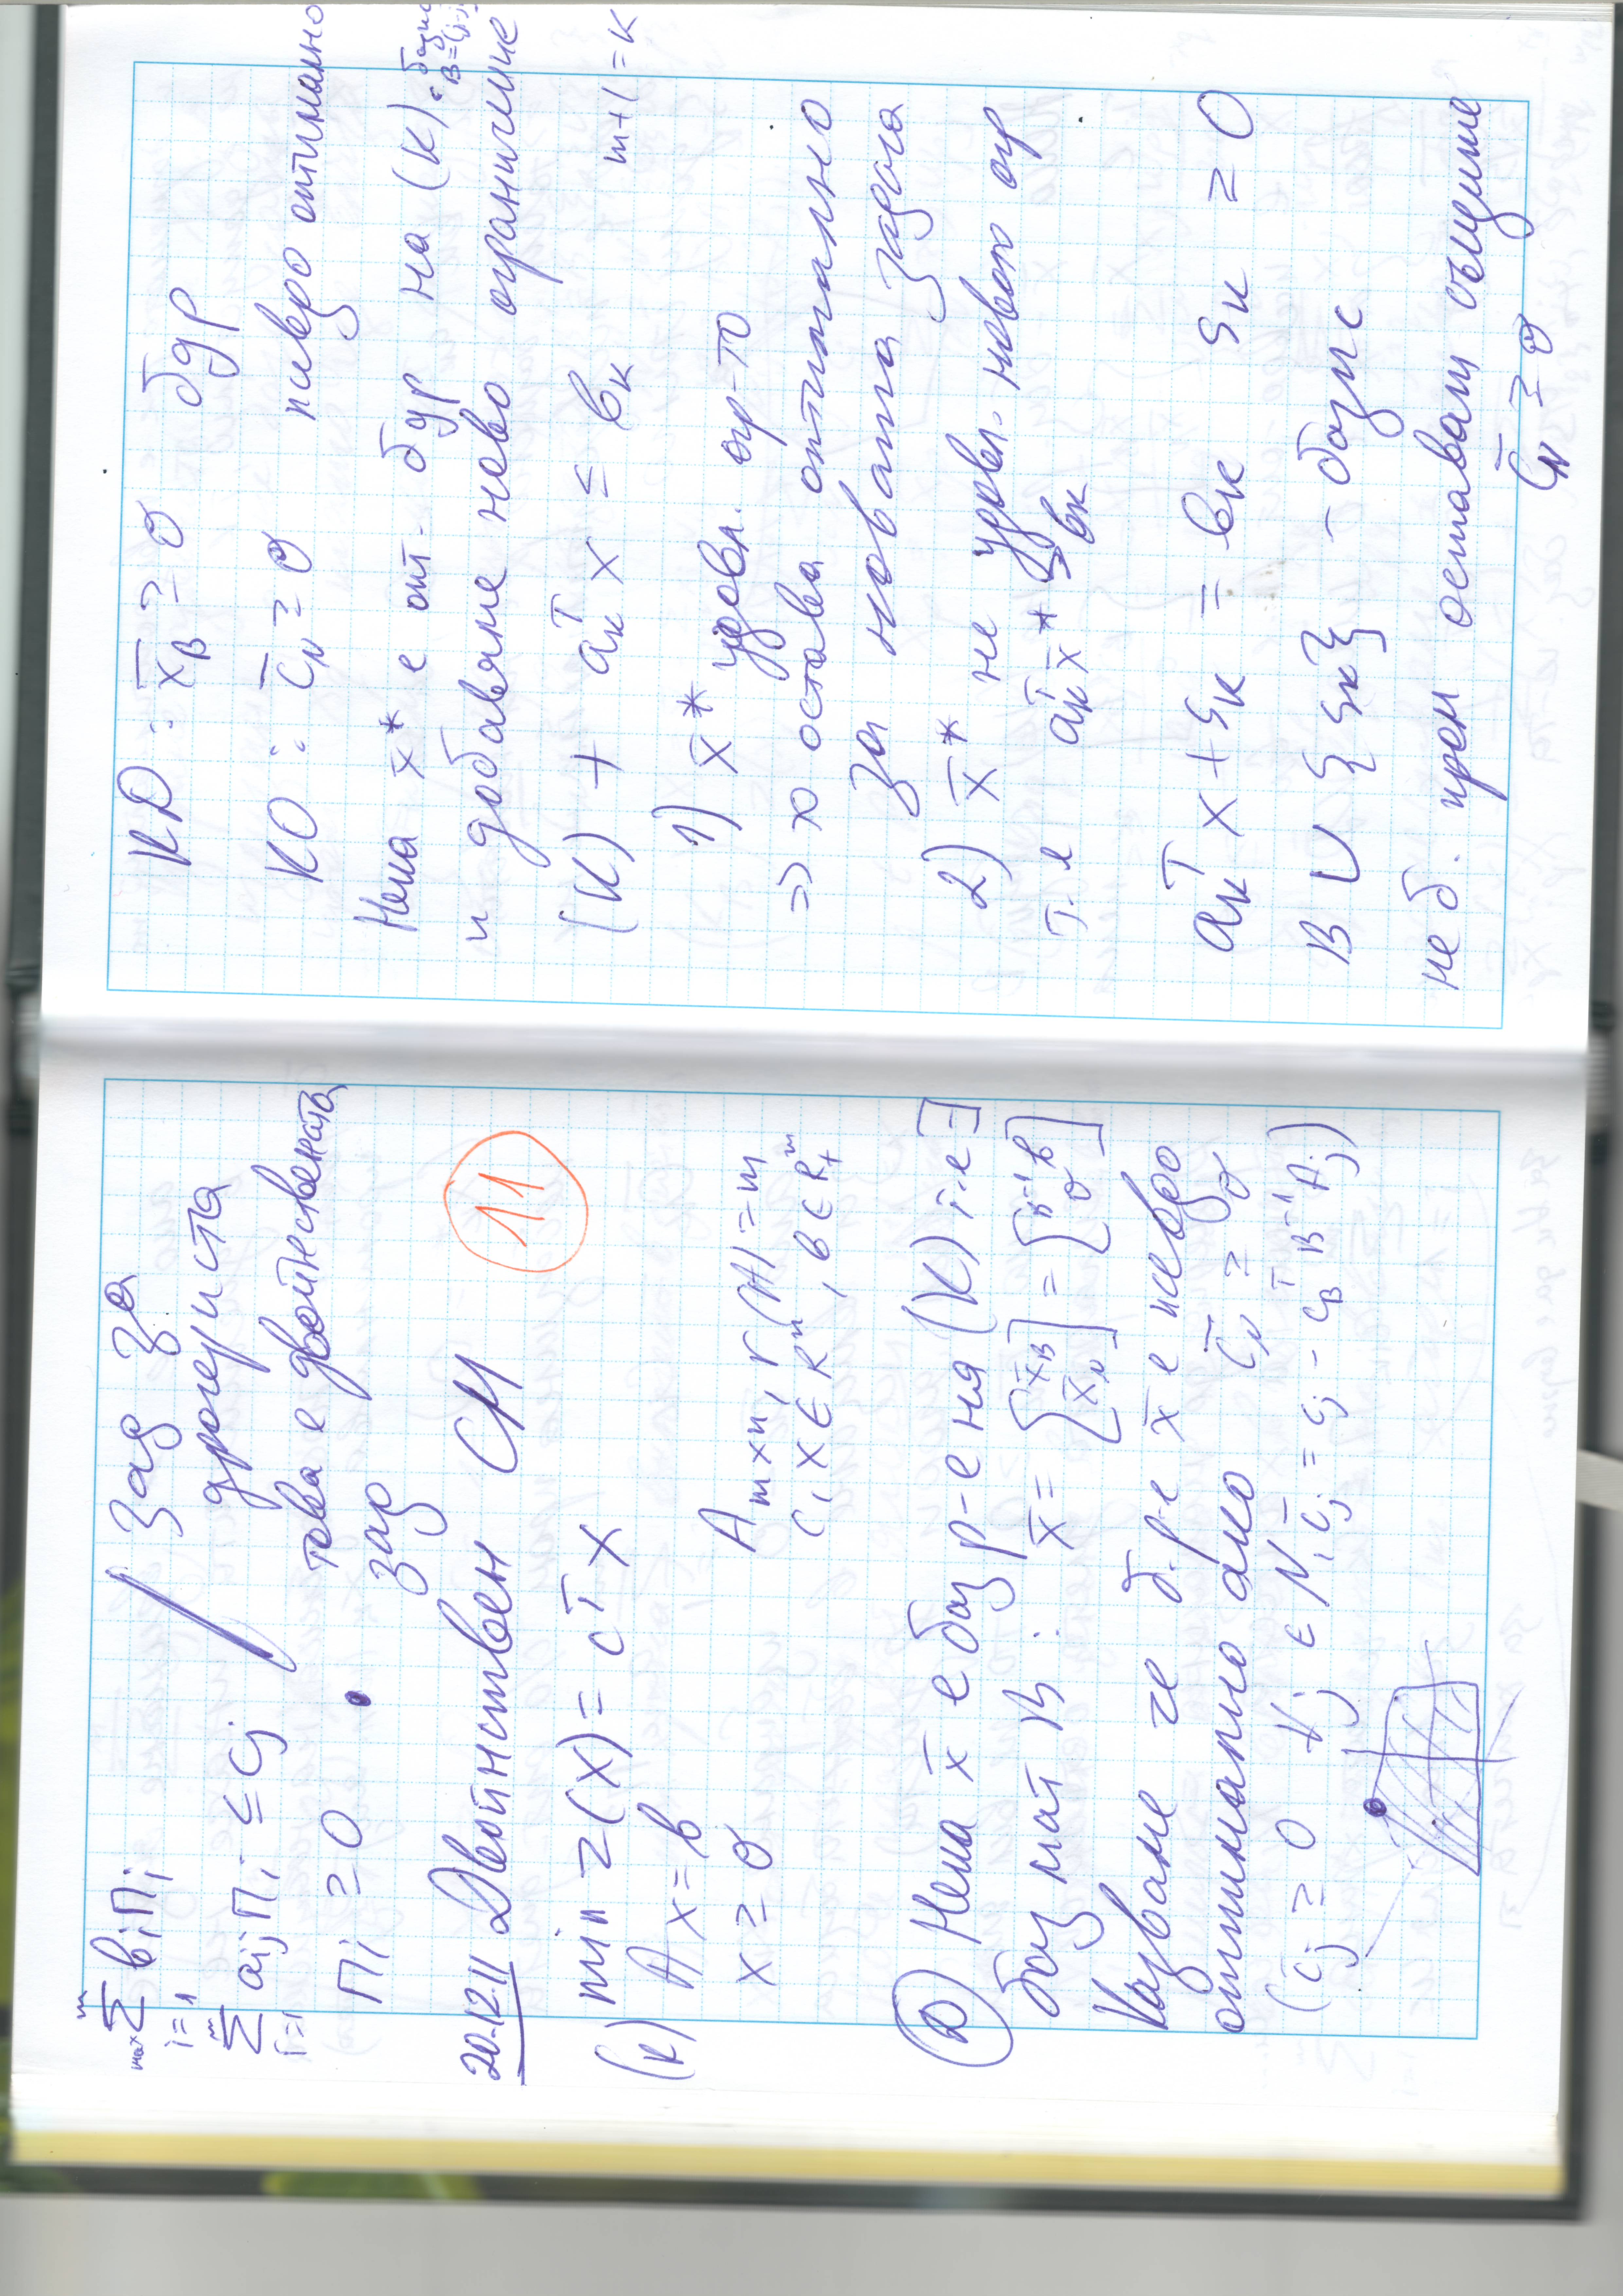 max Σ bᵢπᵢ
i=1 m
Σ aᵢⱼπᵢ ≤ cⱼ
i=1 m
πᵢ ≥ 0
Зад за
дрогериста
това е двойнствената
зад
20.12.11 Двойнствен СМ
11
(K) min z(x) = cᵀx
Ax = b
x ≥ 0
Aₘₓₙ, r(A) = m
c, x ∈ Rⁿ, b ∈ R₊ᵐ
(D) Нека x̄ е баз р-е на (K) i.e ∃
баз мат B: x̄ = [x̄_B x̄_N] = [B⁻¹b 0]
Казваме че б.р-е x̄ е псевдо
оптимално ако c̄_N ≥ 0
(c̄ⱼ ≥ 0 ∀j ∈ N, c̄ⱼ = cⱼ - c_Bᵀ B⁻¹Aⱼ)
КД: x̄_B ≥ 0 бдр
КО: c̄_N ≥ 0 псевдо оптимално
Нека x̄* е опт. бдр на (K)
и добавяме ново ограничение
(K) + aₖᵀx ≤ bₖ m+1 = k
1) x̄* удовл. огр-то
=> x остава оптимално
за новата задача
2) x̄* не удовл. новот огр
т.е aₖᵀx̄* > bₖ
aₖᵀx + sₖ = bₖ sₖ ≥ 0
B ∪ {sₖ} - базис
остават същите
c̄_N ≥ 0